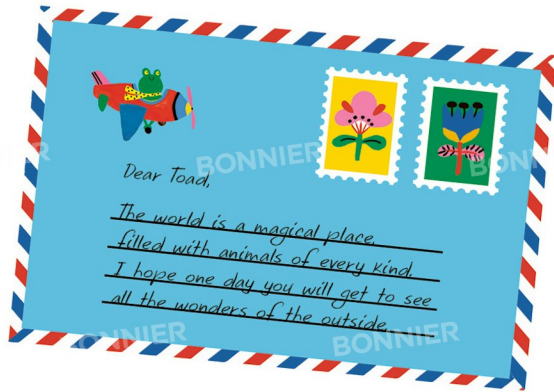 Dear Toad,
The world is a magical place,
filled with animals of every kind.
I hope one day you will get to see
all the wonders of the outside.
BONNIER
BONNIER
BONNIER